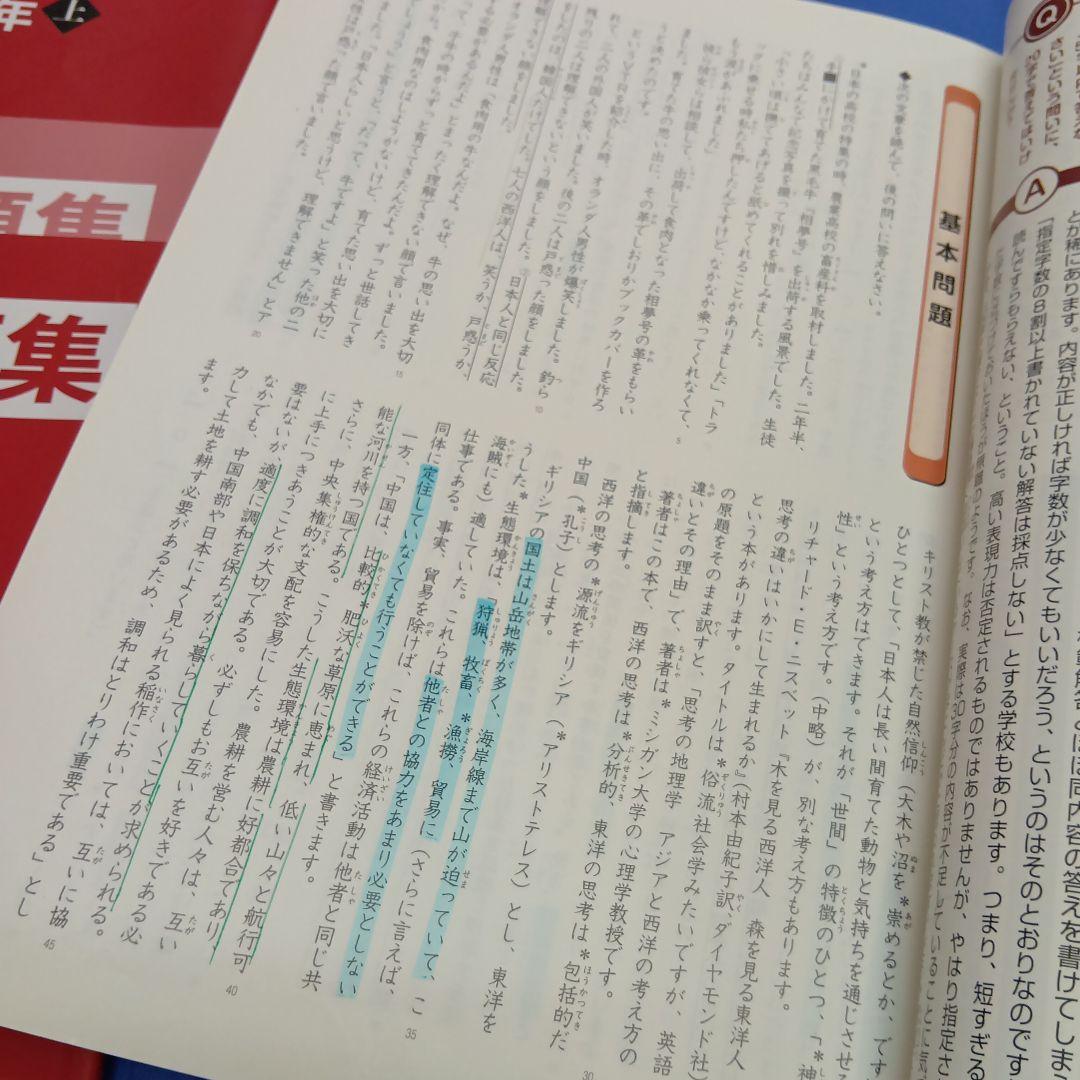 年 上
題集
集
基本問題
◆次の文章を読んで、後の問いに答えなさい。
日本の高校の特集の時、農業高校の畜産科を取材しました。二年半、
育てた黒毛牛「相撲号」を出荷する風景でした。生徒
たちはみんなと記念写真を撮って別れを惜しみました。
「小さい頃は撫でてあげると舐めてくれることがありました」「トラ
ックに乗せる時もただ押したんですけど、なかなか乗ってくれなくて、
もう涙があふれました」
彼ら彼女らは相談して、出荷して食肉となった相撲号の革をもらい
ました。育てた牛の思い出に、その革でしおりかブックカバーを作ろ
うと決めたのです。
というVTRを紹介した時、オランダ人男性が爆笑しました。釣ら
れて、二人の外国人が笑いました。後の二人は戸惑った顔をしました。
残りの二人は理解できないという顔をしました。②日本人と同じ反応
をしたのは、韓国人だけでした。七人の西洋人は、笑うか、戸惑うか、
できない顔をしました。
オランダ人男性は、「食肉用の牛なんだよ。なぜ、牛の思い出を大切
にする必要があるんだよ」とまったく理解できない顔で言いました。
と言うと、「だって、牛ですよ」と笑った他の二
ました。「日本人らしいと思うけど、理解できません」とア
は戸惑った顔で言いました。
キリスト教が禁じた自然信仰(大木や沼を*崇めるとか、です
ひとつとして、「日本人は長い間育てた動物と気持ちを通じさせる
という考え方はできます。それが「世間」の特徴のひとつ、「*神
性」という考え方です。(中略)が、別な考え方もあります。
リチャード・E・ニスベット『木を見る西洋人 森を見る東洋人
思考の違いはいかにして生まれるか』(村本由紀子訳、ダイヤモンド社)
という本があります。タイトルは*俗流社会学みたいですが、英語
の原題をそのまま訳すと、「思考の地理学 アジアと西洋の考え方の
違いとその理由」で、著者は*ミシガン大学の心理学教授です。
著者はこの本で、西洋の思考は*分析的、東洋の思考は*包括的だ
と指摘します。
西洋の思考の*源流をギリシア(*アリストテレス)とし、東洋を
中国(*孔子)とします。
ギリシアの「国土は山岳地帯が多く、海岸線まで山が迫っていて、こ
うした*生態環境は、「狩猟、牧畜、*漁撈、貿易に(さらに言えば、
海賊にも)適していた。これらは他者との協力をあまり必要としない
仕事である。事実、貿易を除けば、これらの経済活動は他者と同じ共
同体に定住していなくても行うことができる」と書きます。
一方、「中国は、比較的*肥沃な草原に恵まれ、低い山々と航行可
能な河川を持つ国である。こうした生態環境は農耕に好都合であり、
さらに、中央集権的な支配を容易にした。農耕を営む人々は、互い
に上手につきあうことが大切である。必ずしもお互いを好きである必
要はないが、適度に調和を保ちながら暮らしていくことが求められる。
なかでも、中国南部や日本によく見られる稲作においては、互いに協
力して土地を耕す必要があるため、調和はとりわけ重要である」とし
ます。
5
10
15
20
30
35
40
45
Q
A
とが稀にあります。内容が正しければ字数が少なくてもいいだろう、というのはそのとおりなのです
「指定字数の8割以上書かれていない解答は採点しない」とする学校もあります。つまり、短すぎる
読んですらもらえない、ということ。高い表現力は否定されるものではありませんが、やはり指定さ